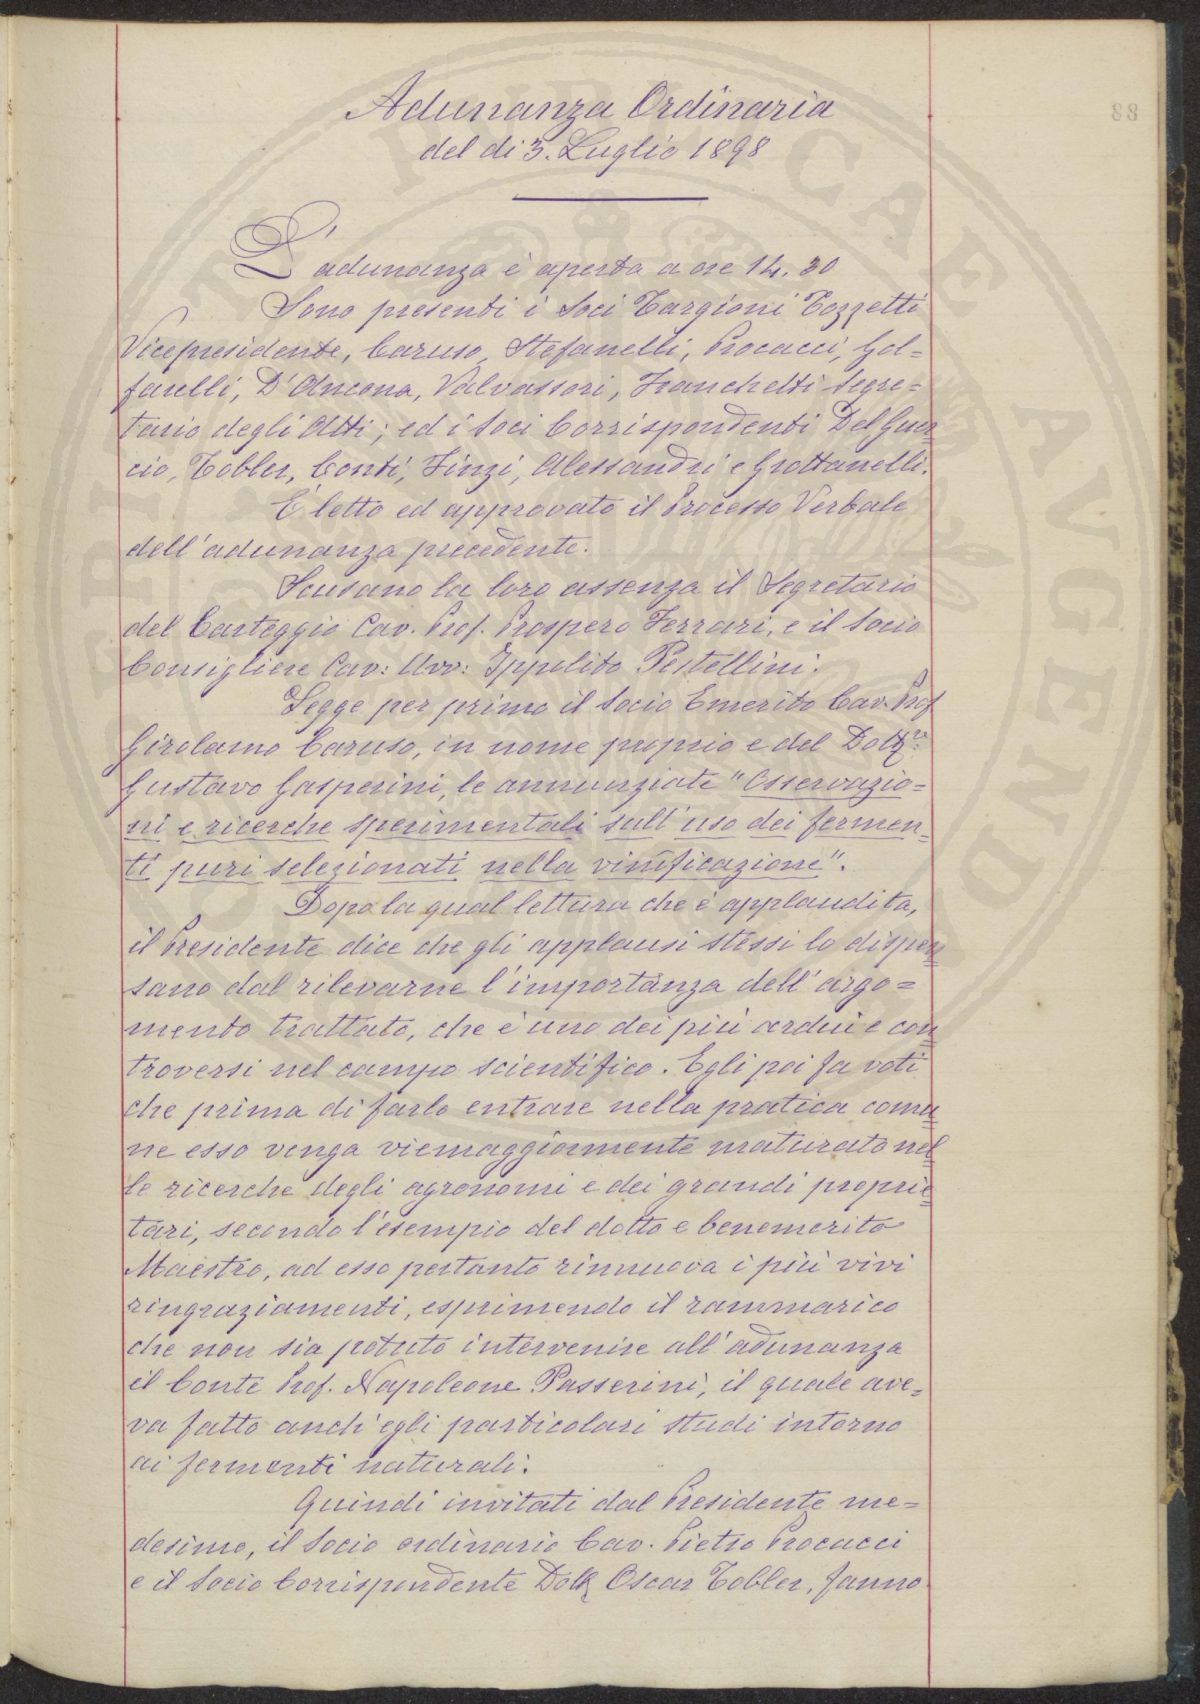 Adunanza Ordinaria
88
del di 3. Luglio 1898
L'adunanza è aperta a ore 14.30
Sono presenti i Soci Targioni Tozzetti
Vicepresidente, Caruso, Stefanelli, Procacci, Gol=
farelli, D'Ancona, Valvassori, Franchetti Segre=
tario degli Atti; ed i Soci Corrispondenti Del Guer=
cio, Tobler, Conti, Finzi, Alessandri e Grottanelli.
E' letto ed approvato il Processo Verbale
dell'adunanza precedente.
Scusano la loro assenza il Segretario
del Carteggio Cav. Prof. Prospero Ferrari, e il Socio
Consigliere Cav: Avv: Ippolito Pestellini.
Legge per primo il Socio Emerito Cav. Prof
Girolamo Caruso, in nome proprio e del Dott.re
Gustavo Gasperini, le annunziate "Osservazio=
ni e ricerche sperimentali sull'uso dei fermen=
ti puri selezionati nella vinificazione".
Dopo la qual lettura che è applaudita,
il Presidente dice che gli applausi stessi lo dispen=
sano dal rilevarne l'importanza dell'argo=
mento trattato, che è uno dei più ardui e con=
troversi nel campo scientifico. Egli poi fa voti
che prima di farlo entrare nella pratica comu=
ne esso venga viemaggiormente maturato nel=
le ricerche degli agronomi e dei grandi proprie=
tari, secondo l'esempio del dotto e benemerito
Maestro, ad esso pertanto rinnuova i più vivi
ringraziamenti, esprimendo il rammarico
che non sia potuto intervenire all'adunanza
il Conte Prof. Napoleone Passerini, il quale ave=
va fatto anch'egli particolari studi intorno
ai fermenti naturali.
Quindi invitati dal Presidente me=
desimo, il Socio ordinario Cav. Pietro Procacci
e il Socio Corrispondente Dott. Oscar Tobler, fanno